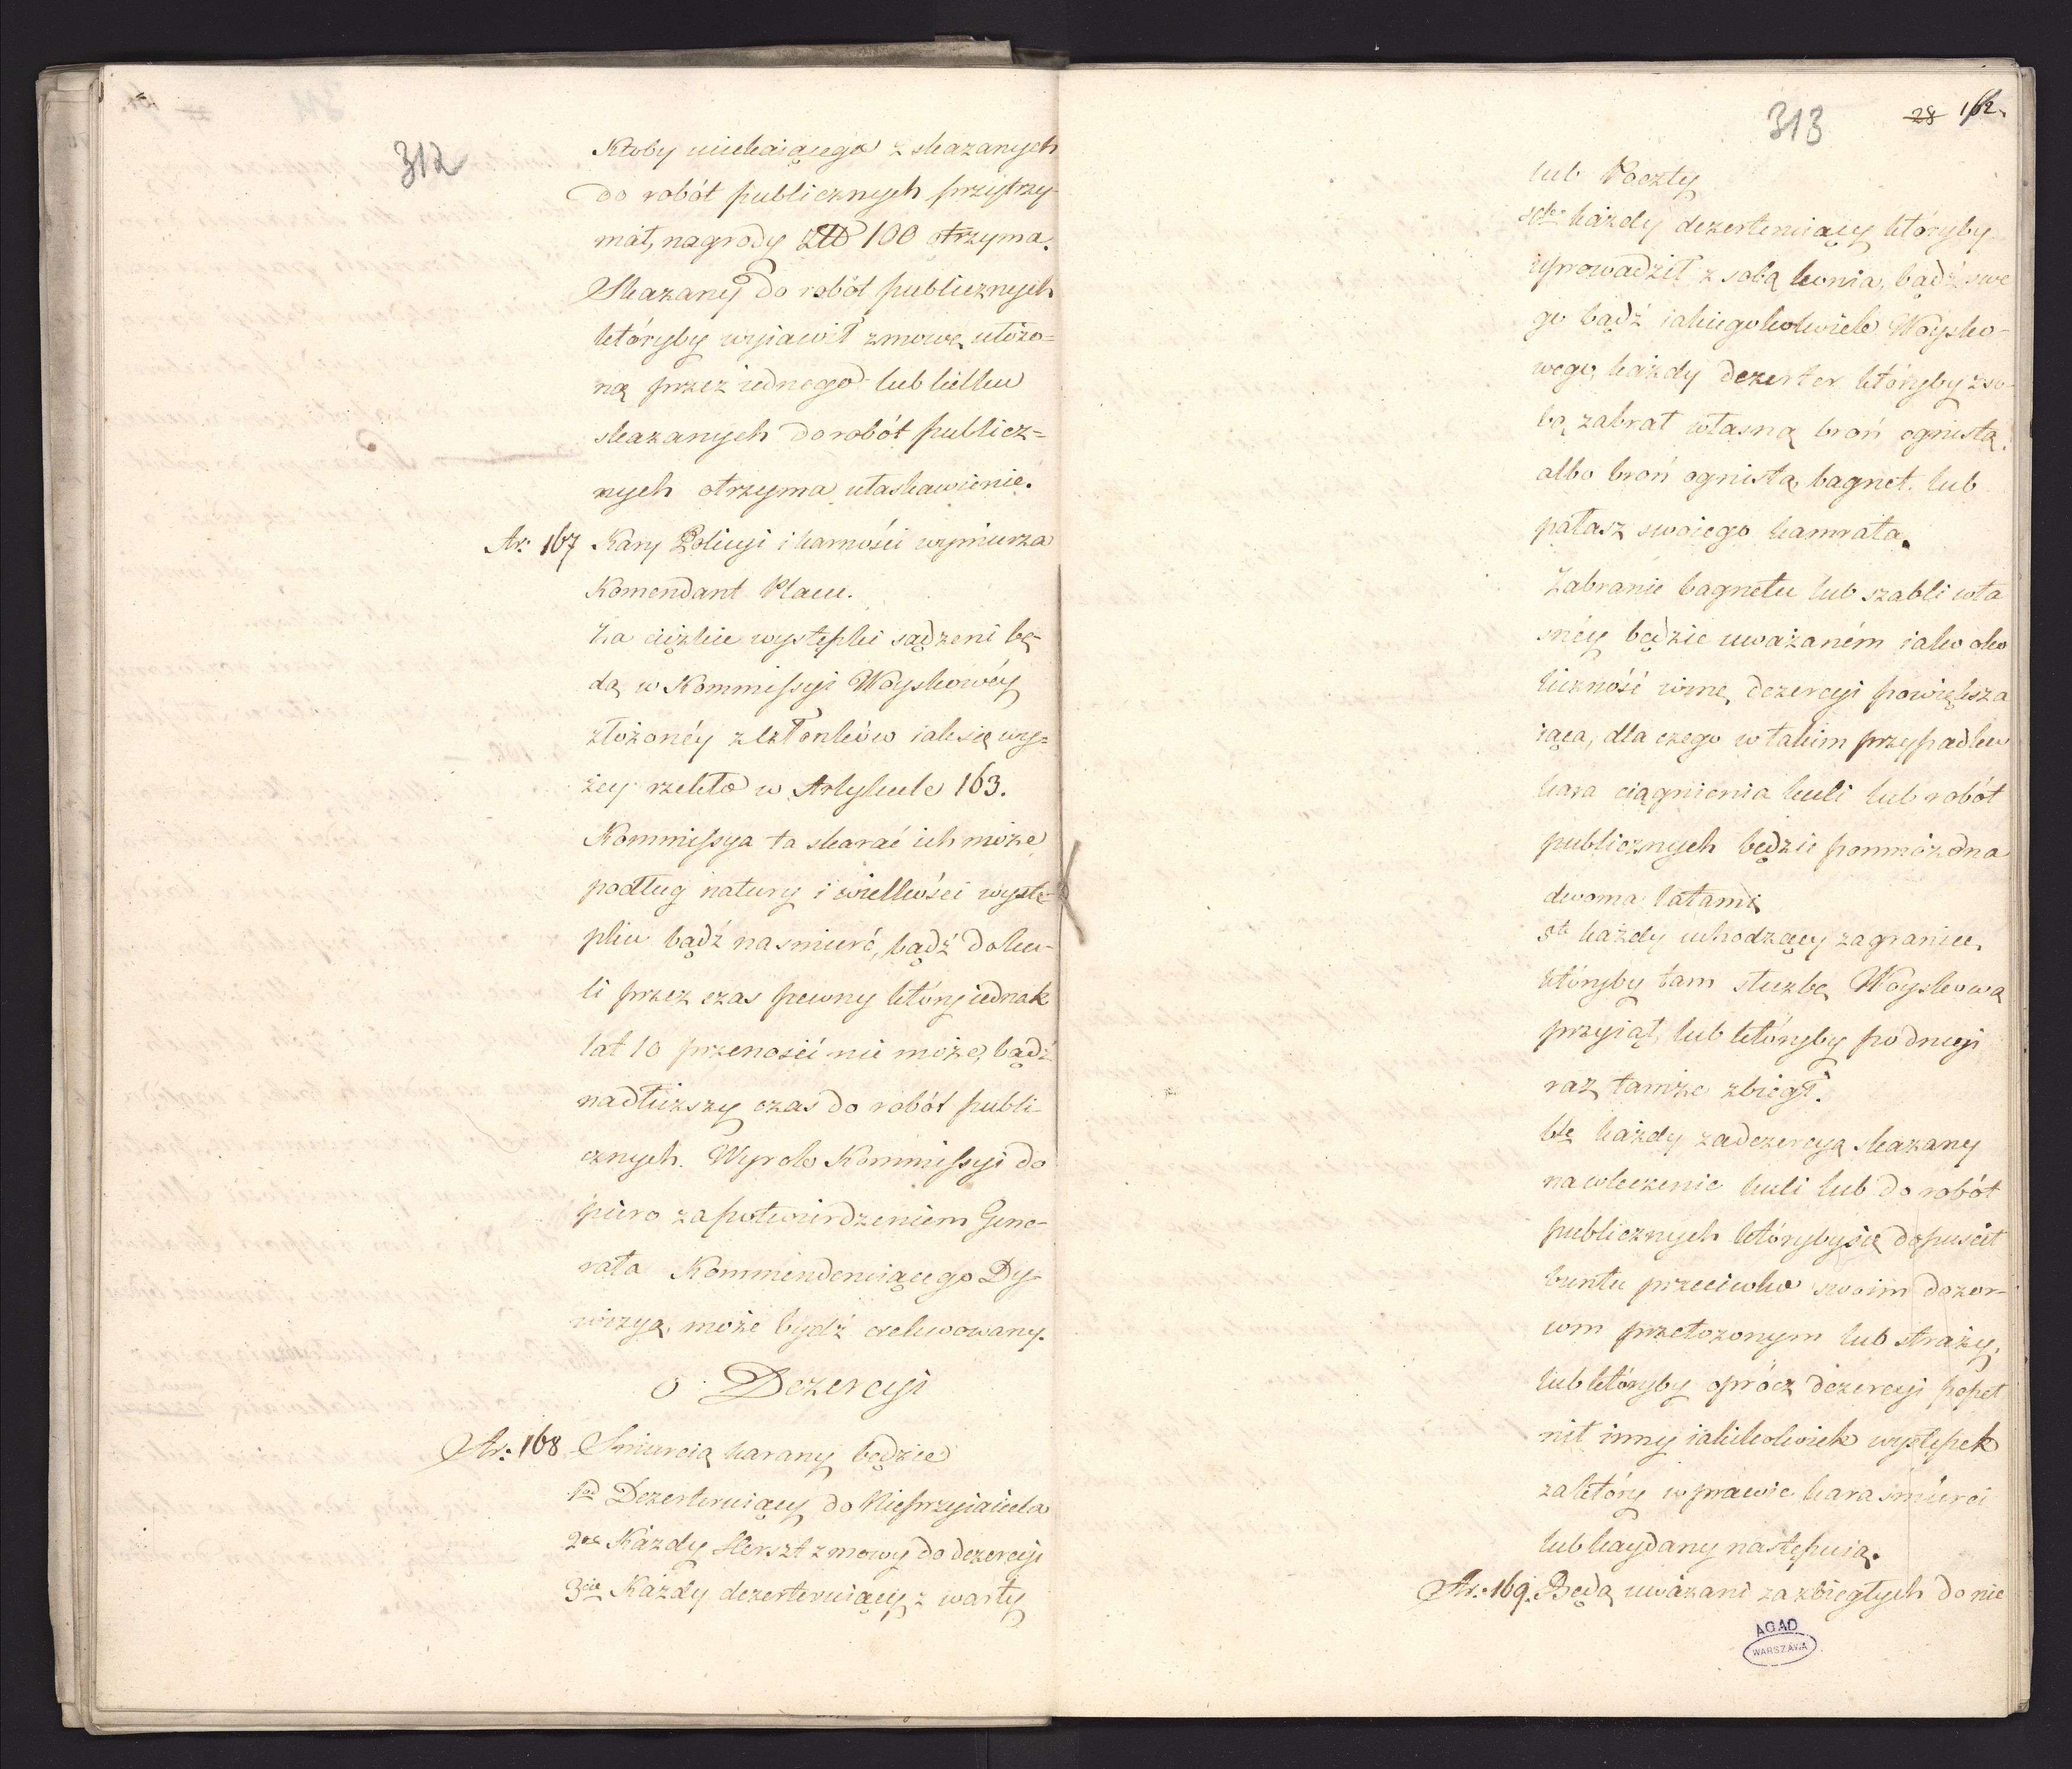 312
Ktoby uciekaiącego z skazanych
do robót publicznych przytrzy-
mał, nagrody Złł 100 otrzyma.
Skazany do robót publicznych
któryby wyiawił zmowę ułożo=
ną przez iednego lub kilku
skazanych do robót publicz=
nych otrzyma ułaskawienie.
Ar: 167 Kary Policyi i karności wymierza
Komendant Placu.
Za ciężkie występki sądzeni bę-
dą w Kommissyi Woyskowéy
złożonéy z członków iak się wy=
żey rzekło w Artykule 163.
Kommissya ta skarać ich może
podług natury i wielkości wystę-
pku bądź na smierć, bądź do ku-
li przez czas pewny który iednak
lat 10 przenosić nie może, bądź
na dłuższy czas do robót publi-
cznych. Wyrok Kommissyi do
piero za potwierdzeniem Gene-
rała Kommenderuiącego Dy-
wizyą, może bydź exekwowany.
O Dezercyi
Ar: 168 Smiercią karany będzie
1od Dezerteruiący do Nieprzyiaciela
2re Każdy Herszt zmowy do dezercyi
3cie Każdy dezerteruiący z warty
313 28 162.
lub Poczty
4te każdy dezerteruiący któryby
uprowadził z sobą konia, bądź swe
go bądź iakiegokolwiek Woysko-
wego, każdy dezerter któryby z so-
bą zabrał własną broń ognistą,
albo broń ognistą, bagnet lub
pałasz swoiego kamrata.
Zabranie bagnetu lub szabli wła
snéy będzie uważaném iako oko
liczność winę dezercyi powiększa
iąca, dla czego w takim przypadku
kara ciągnienia kuli lub robót
publicznych będzie pomnożona
dwoma latami
5te każdy uchodzący za granicę,
któryby tam służbę Woyskową
przyiął, lub któryby po drugi
raz tamże zbiegł.
6te każdy za dezercyą skazany
na wleczenie kuli lub do robót
publicznych któryby się dopuścił
buntu przeciwko swoim dozor-
com przełożonym lub straży,
lub któryby oprócz dezercyi popeł
nił inny iakikolwiek występek
za który w prawie kara śmierci
lub kaydany następuią.
Ar: 169. Będą uważani za zbiegłych do nie
AGAD
WARSZAWA